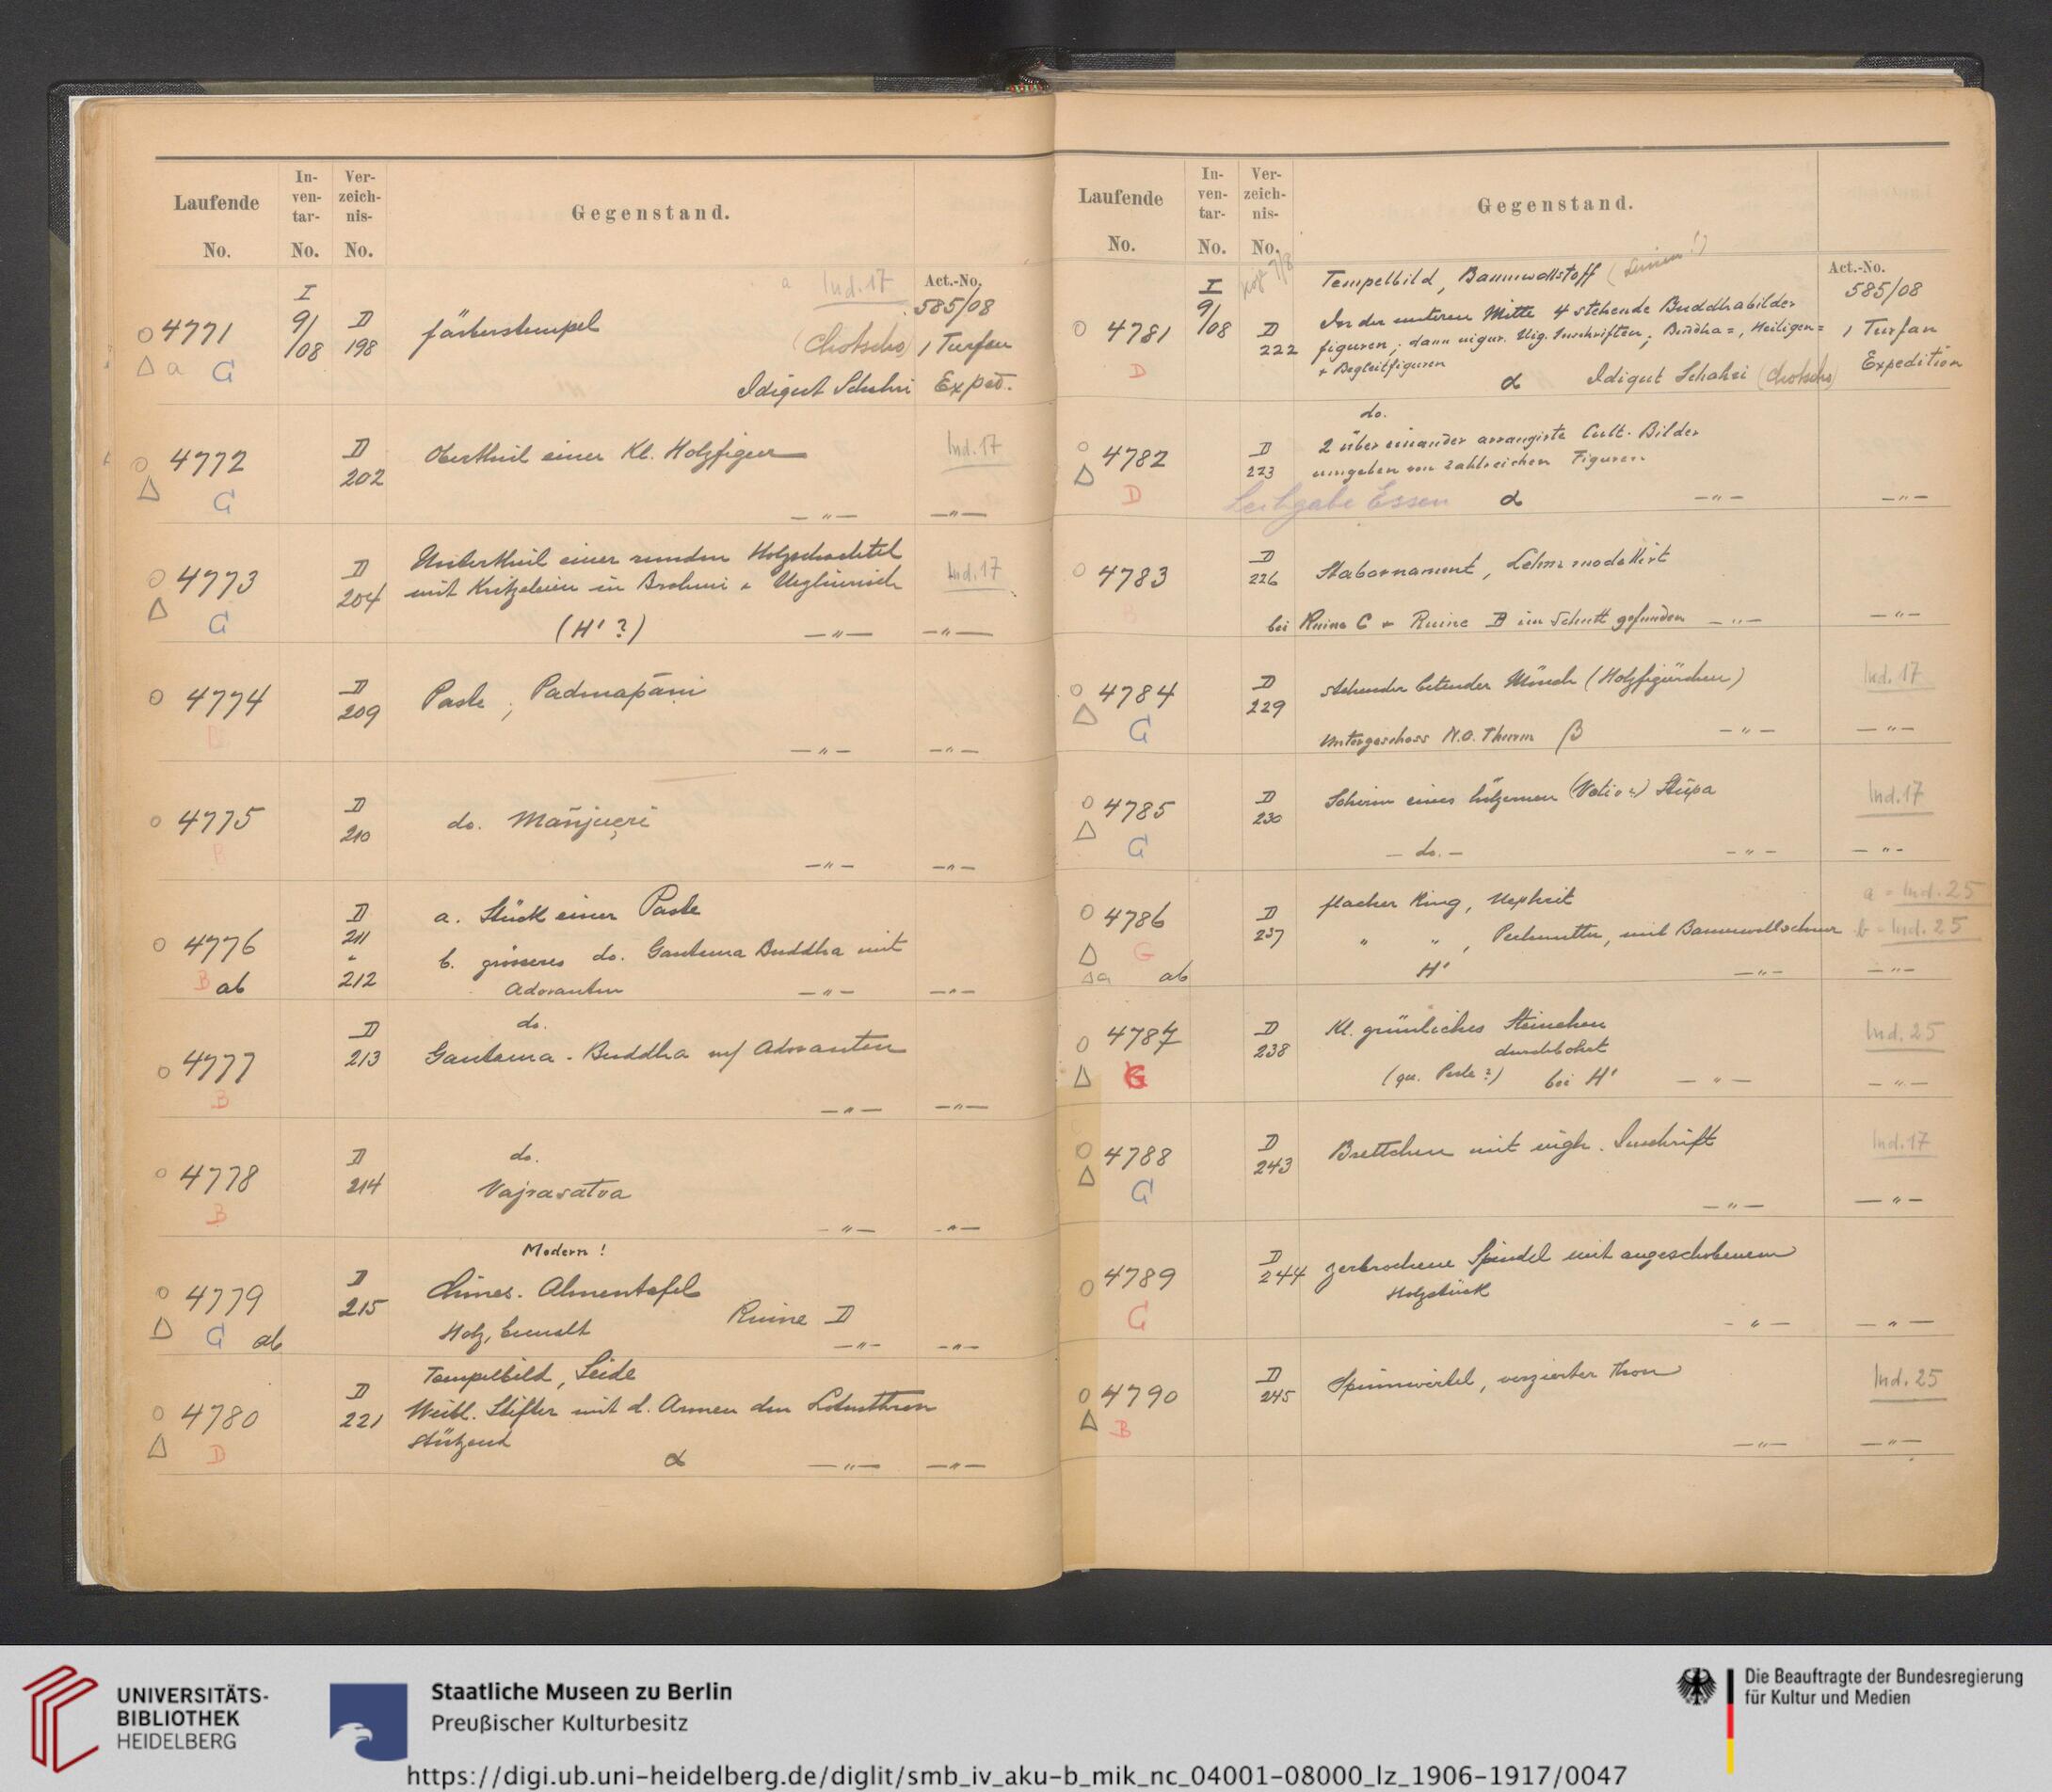 Laufende
No.
In-
ven-
tar-
No.
Ver-
zeich-
nis-
No.
Gegenstand.
a Ind. 17
Act.-No.
585/08
○ 4771
△ a G
I
9/
/08
D
198
färberstempel
(Chotscho)
1 Turfan
Idigut Schahri
Exped.
○ 4772
△ G
D
202
Obertheil einer kl. Holzfigur
Ind. 17
— " —
— " —
○ 4773
△ G
D
204
Untertheil einer runden Holzschachtel
mit Kritzeleien in Brahmi + Uighurisch
Ind. 17
(H' ?)
— " —
— " —
○ 4774
B
D
209
Paste, Padmapāṇi
— " —
— " —
○ 4775
B
D
210
do. Mañjuçri
— " —
— " —
○ 4776
B ab
D
211
+
212
a. Stück einer Paste
b. grösseres do. Gautama Buddha mit
Adoranten
— " —
— " —
○ 4777
B
D
213
do.
Gautama-Buddha m/ Adoranten
— " —
— " —
○ 4778
B
D
214
do.
Vajrasatva
— " —
— " —
○ 4779
△ G ab
D
215
Modern!
Chines. Ahnentafel
Holz, bemalt
Ruine D
— " —
— " —
○ 4780
△ D
D
221
Tempelbild, Seide
Weibl. Stifter mit d. Armen den Lotusthron
stützend
α
— " —
— " —
Laufende
No.
In-
ven-
tar-
No.
Ver-
zeich-
nis-
No.
Gegenstand.
Act.-No.
585/08
○ 4781
D
I
9/
/08
D
222
Tempelbild, Baumwollstoff (Leinen!)
In der unteren Mitte 4 stehende Buddhabilder
figuren; dann uigur. Uig. Inschriften, Buddha=, Heiligen=
+ Begleitfiguren
α
Idigut Schahri (Chotscho)
1 Turfan
Expedition
○ 4782
△ D
D
223
do.
2 über einander arrangirte Cult-Bilder
umgeben von zahlreichen Figuren
Leihgabe Essen
α
— " —
— " —
○ 4783
B
D
226
Stabornament, Lehm modellirt
bei Ruine C + Ruine B im Schutt gefunden
— " —
— " —
○ 4784
△ G
D
229
stehender betender Mönch (Holzfigürchen)
Ind. 17
Untergeschoss N.O. Thurm β
— " —
— " —
○ 4785
△ G
D
230
Schirm eines hölzernen (Votiv?) Stūpa
Ind. 17
— do. —
— " —
— " —
○ 4786
△ G
△a ab
D
237
flacher Ring, Nephrit
a = Ind. 25
" ", Perlmutter, mit Baumwollschnur
b = Ind. 25
H'
— " —
— " —
○ 4787
△ G
D
238
Kl. grünliches Steinchen
durchbohrt
Ind. 25
(gr. Perle?) bei H'
— " —
— " —
○ 4788
△ G
D
243
Brettchen mit uigh. Inschrift
Ind. 17
— " —
— " —
○ 4789
G
D
244
zerbrochene Spindel mit angeschobenem
Holzstück
— " —
— " —
○ 4790
△ B
D
245
Spinnwirtel, verzierter Thon
Ind. 25
— " —
— " —
UNIVERSITÄTS-
BIBLIOTHEK
HEIDELBERG
Staatliche Museen zu Berlin
Preußischer Kulturbesitz
Die Beauftragte der Bundesregierung
für Kultur und Medien
https://digi.ub.uni-heidelberg.de/diglit/smb_iv_aku-b_mik_nc_04001-08000_lz_1906-1917/0047